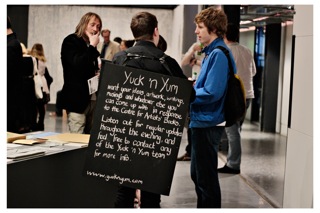 Yuck 'n Yum
want your ideas, artwork, writing,
musings and whatever else you
can come up with in response
to the Centre for Artists' Books.
Listen out for regular updates
throughout the evening, and
feel free to contact any
of the Yuck 'n Yum team
for more info.